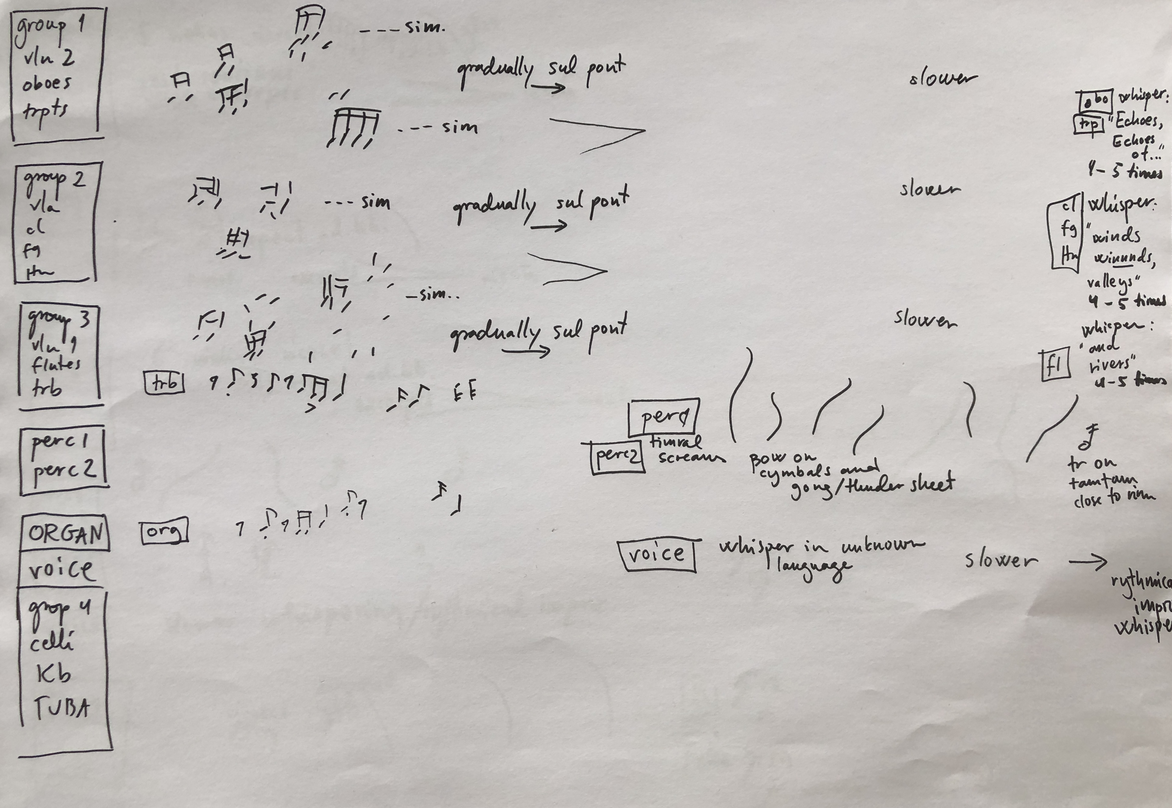 group 1
vln 2
oboes
trpts
--- sim.
gradually sul pont
--- sim
slower
obo
trp
whisper:
"Echoes,
Echoes
of..."
4-5 times
group 2
vla
cl
fg
Hn
--- sim
gradually sul pont
slower
cl
fg
Hn
whisper:
"winds
winunds,
valleys"
4-5 times
group 3
vln 1
flutes
trb
-sim..
gradually sul pont
slower
fl
whisper:
"and
rivers"
4-5 times
trb
perc1
perc2
perc1
perc2
timral
screams
Bow on
cymbals and
gong/thunder sheet
tr on
tamtam
close to rim
ORGAN
org
voice
voice
whisper in unknown
language
slower
rythmica
impro
whispe
grop 4
celli
Kb
TUBA